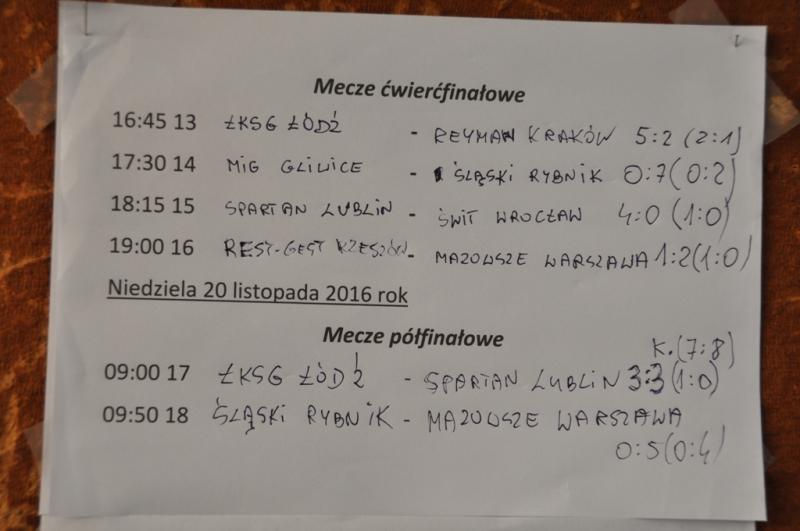 Mecze ćwierćfinałowe
16:45 13 ŁKSG ŁÓDŹ - REYMAN KRAKÓW 5:2 (2:1)
17:30 14 MIG GLIWICE - ŚLĄSKI RYBNIK 0:7 (0:2)
18:15 15 SPARTAN LUBLIN - ŚWIT WROCŁAW 4:0 (1:0)
19:00 16 REST-GEST RZESZÓW - MAZOWSZE WARSZAWA 1:2 (1:0)
Niedziela 20 listopada 2016 rok
Mecze półfinałowe
K. (7:8)
09:00 17 ŁKSG ŁÓDŹ - SPARTAN LUBLIN 3:3 (1:0)
09:50 18 ŚLĄSKI RYBNIK - MAZOWSZE WARSZAWA
0:5 (0:4)